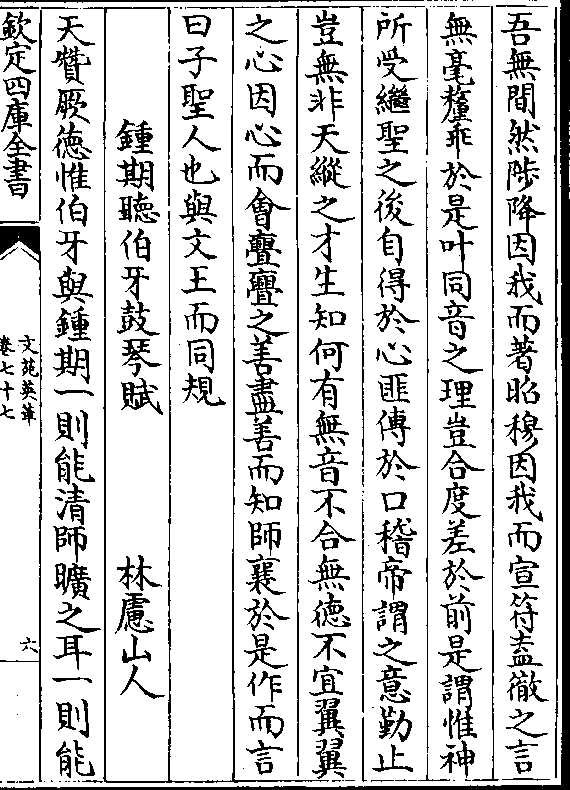 吾無間然陟降因我而著昭穆因我而宣符盍徹之言
無毫釐乖於是叶同音之理豈合度差於前是謂惟神
所受繼聖之後自得於心匪傳於口稽帝謂之意勤止
豈無非天縱之才生知何有無音不合無德不宜翼翼
之心因心而會亹亹之善盡善而知師襄於是作而言
曰子聖人也與文王而同規
鍾期聽伯牙鼓琴賦 林慮山人
天贊厥德惟伯牙與鍾期一則能清師曠之耳一則能
欽定四庫全書
文苑英華
卷七十七
六